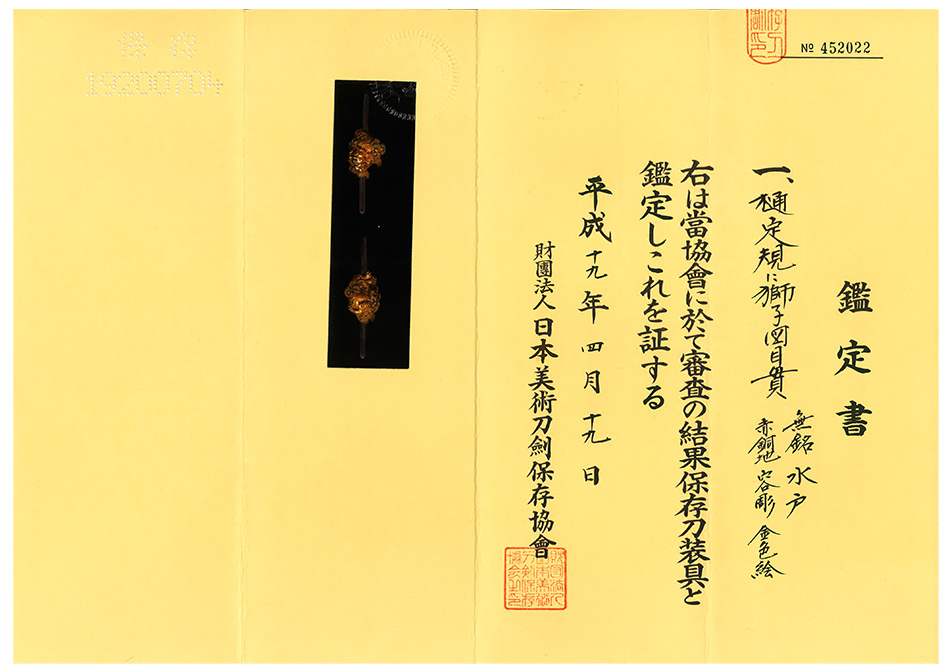 № 452022
鑑定書
一、樋定規に獅子図目貫
無銘 水戸
赤銅地 容彫 金色絵
右は當協會に於て審査の結果保存刀装具と
鑑定しこれを証する
平成十九年四月十九日
財團法人日本美術刀劍保存協會
保存
19200704